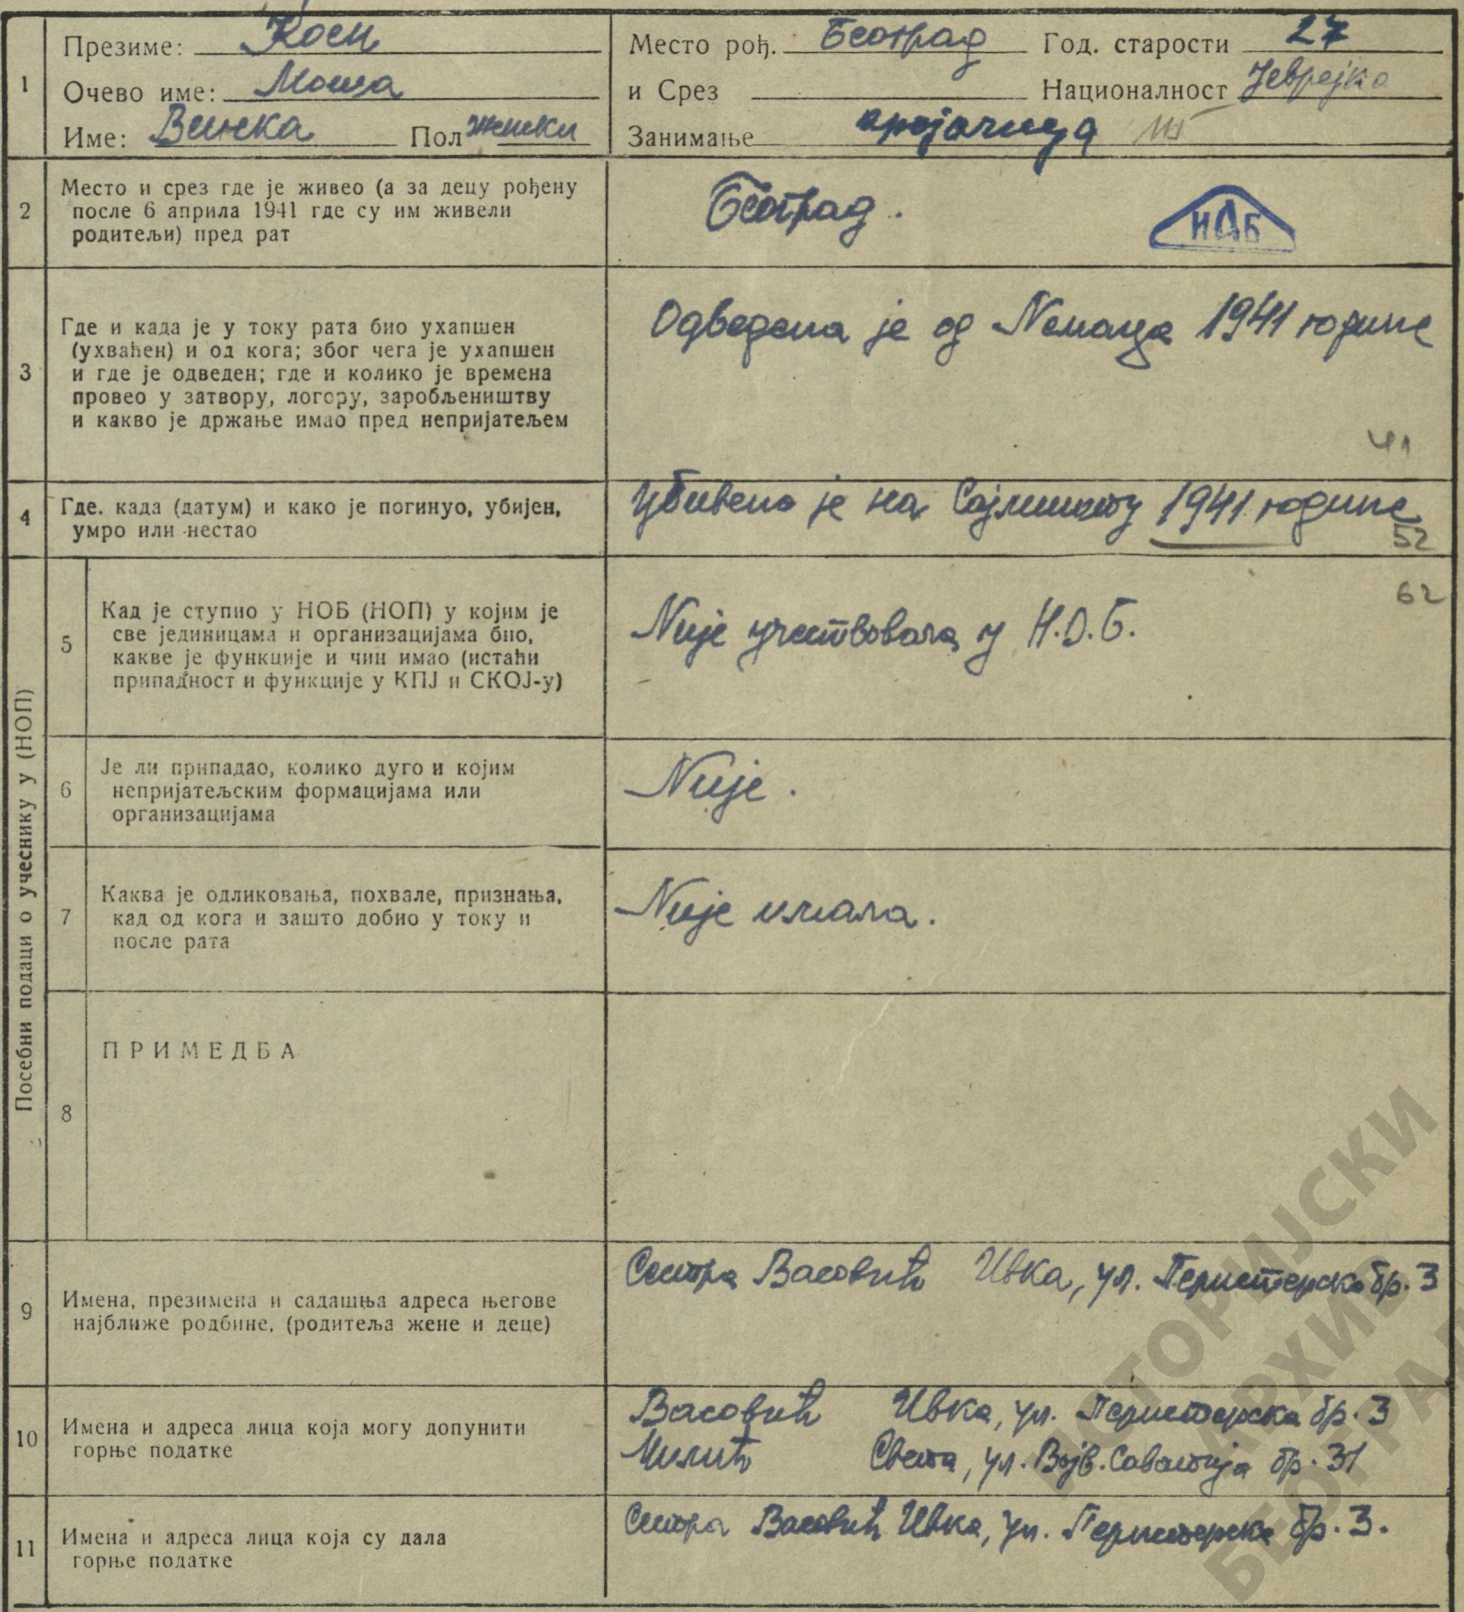 1
Презиме: Коен
Очево име: Моша
Име: Винка Пол женски
Место рођ. Београд Год. старости 27
и Срез Национальност Јеврејка
Занимање кројачица III
2
Место и срез где је живео (а за децу рођену
после 6 априла 1941 где су им живели
родитељи) пред рат
Београд.
НАБ
3
Где и када је у току рата био ухапшен
(ухваћен) и од кога; због чега је ухапшен
и где је одведен; где и колико је времена
провео у затвору, логору, заробљеништву
и какво је држање имао пред непријатељем
Одведена је од Немаца 1941 године
41
4
Где. када (датум) и како је погинуо, убијен,
умро или нестао
Убивено је на Сајмишту 1941 године
52
Посебни подаци о учеснику у (НОП)
5
Кад је ступио у НОБ (НОП) у којим је
све јединицама и организацијама био,
какве је функције и чин имао (истаћи
припадност и функције у КПЈ и СКОЈ-у)
62
Није учествовала у Н.О.Б.
6
Је ли припадао, колико дуго и којим
непријатељским формацијама или
организацијама
Није.
7
Каква је одликовања, похвале, признања,
кад од кога и зашто добио у току и
после рата
Није имала.
8
ПРИМЕДБА
9
Имена, презимена и садашња адреса његове
најближе родбине, (родитеља жене и деце)
Сестра Васовић Ивка, ул. Перистерска бр. 3
10
Имена и адреса лица која могу допунити
горње податке
Васовић Ивка, ул. Перистерска бр. 3
Милић Света, ул. Војв. Саватија бр. 31
11
Имена и адреса лица која су дала
горње податке
Сестра Васовић Ивка, ул. Перистерска бр. 3.
ИСТОРИЈСКИ
АРХИВ
БЕОГРАД